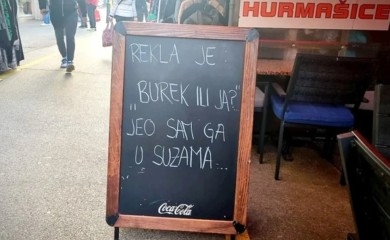 HURMAŠICE
REKLA JE
"BUREK ILI JA?"
JEO SAM GA
U SUZAMA...
Coca-Cola